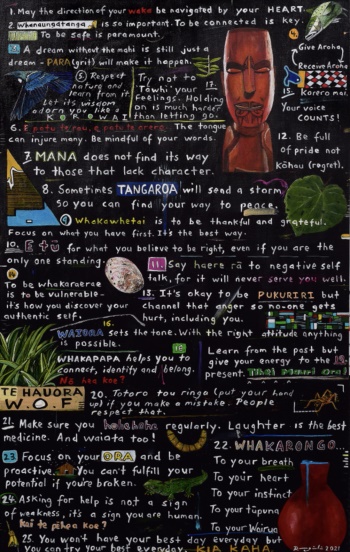 1. May the direction of your waka be navigated by your HEART.
2. Whanaungatanga is so important. To be connected is key.
To be safe is paramount.
A dream without the mahi is still just a
dream - PARA (grit) will make it happen.
4.
Give Aroha
Receive Aroha
5 Respect
nature and
learn from it.
Let its wisdom
adorn you like a
KOROWAI
Try not to
"Tōwhi" your 17.
feelings. Holding
on is much harder
than letting go.
15. Korero mai.
Your voice
COUNTS!
6. E patu te rau, e patu te arero. The tongue
can injure many. Be mindful of your words.
12. Be full
of pride not
Kōhau (regret).
7. MANA does not find its way
to those that lack character.
8. Sometimes TANGAROA will send a storm
so you can find your way to peace.
9 Whakawhetai is to be thankful and grateful.
Focus on what you have first. It's the best way.
E tū for what you believe to be right, even if you are the
only one standing.
11. Say haere rā to negative self
talk, for it will never serve you well.
To be whakaraerae
is to be vulnerable -
it's how you discover your
authentic self.
13. It's okay to be PUKURIRI but
channel that anger so no-one gets
hurt, including you.
16.
WAIORA sets the tone. With the right attitude anything
is possible.
WHAKAPAPA helps you to
connect, identify and belong.
No hea koe?
Learn from the past but
give your energy to the 19.
present.
TE HAUORA
W.O.F
20. Totoro tou ringa (put your hand
up) if you make a mistake. People
respect that.
21. Make sure you hahaha regularly. Laughter is the best
medicine. And waiata too!
22.
WHAKARONGO...
To your breath
To your heart
To your instinct
To your tūpuna
To your Wairua
23. Focus on your ORA and be
proactive. You can't fulfill your
potential if you're broken.
24. Asking for help is not a sign
of weakness, it's a sign you are human.
Kei te pēhea koe?
25. You won't have your best day everyday but
you can try your best everyday. KIA KAHA
2021